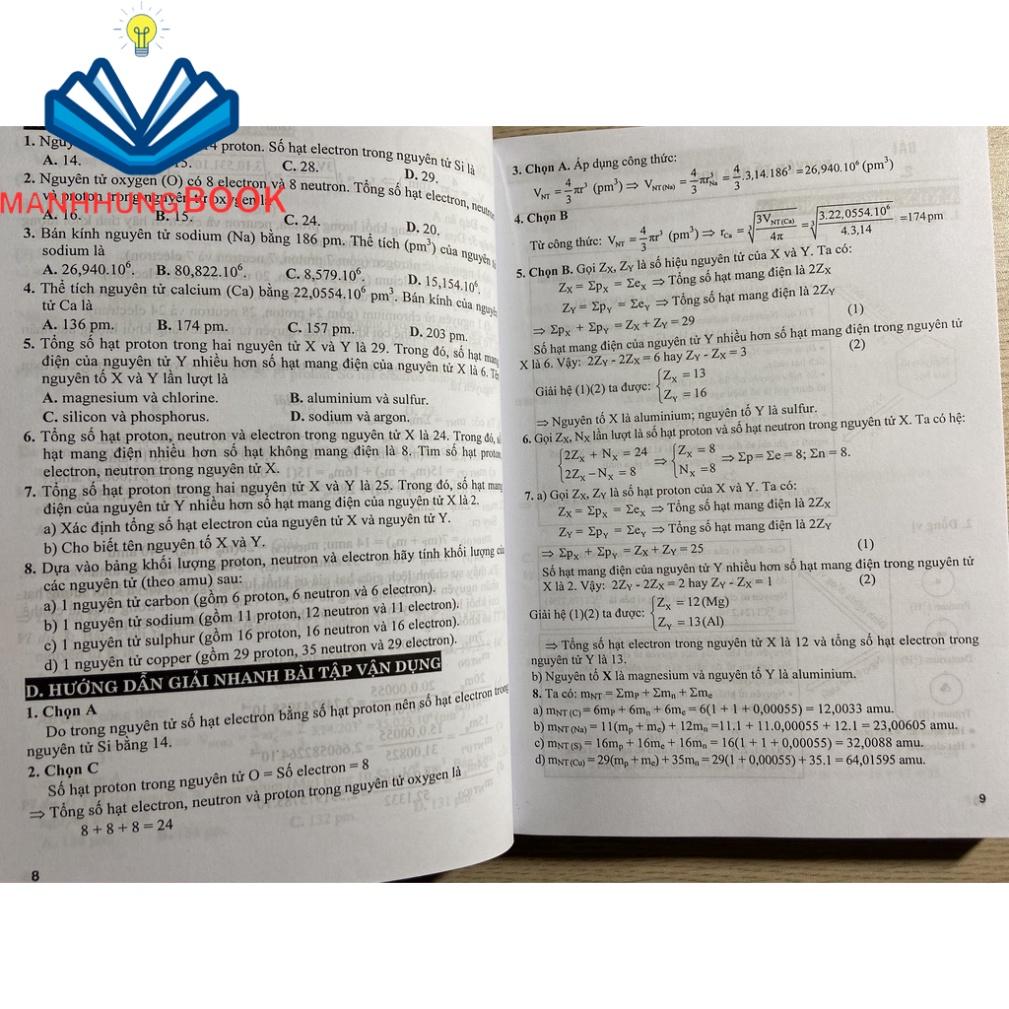 MANHHUNGBOOK
1. 4 proton. Số hạt electron trong nguyên tử Si là
A. 14. C. 28. D. 29.
2. Nguyên tử oxygen (O) có 8 electron và 8 neutron. Tổng số hạt electron, neutron
và proton trong nguyên tử oxygen là
A. 16. B. 15. C. 24. D. 20.
3. Bán kính nguyên tử sodium (Na) bằng 186 pm. Thể tích (pm³) của nguyên
sodium là
A. 26,940.10⁶. B. 80,822.10⁶. C. 8,579.10⁶. D. 15,154.10⁶.
4. Thể tích nguyên tử calcium (Ca) bằng 22,0554.10⁶ pm³. Bán kính của nguyên
tử Ca là
A. 136 pm. B. 174 pm. C. 157 pm. D. 203 pm.
5. Tổng số hạt proton trong hai nguyên tử X và Y là 29. Trong đó, số hạt mang
điện của nguyên tử Y nhiều hơn số hạt mang điện của nguyên tử X là 6.
nguyên tố X và Y lần lượt là
A. magnesium và chlorine. B. aluminium và sulfur.
C. silicon và phosphorus. D. sodium và argon.
6. Tổng số hạt proton, neutron và electron trong nguyên tử X là 24. Trong đó,
hạt mang điện nhiều hơn số hạt không mang điện là 8. Tìm số hạt proton
electron, neutron trong nguyên tử X.
7. Tổng số hạt proton trong hai nguyên tử X và Y là 25. Trong đó, số hạt mang
điện của nguyên tử Y nhiều hơn số hạt mang điện của nguyên tử X là 2.
a) Xác định tổng số hạt electron của nguyên tử X và nguyên tử Y.
b) Cho biết tên nguyên tố X và Y.
8. Dựa vào bảng khối lượng proton, neutron và electron hãy tính khối lượng của
các nguyên tử (theo amu) sau:
a) 1 nguyên tử carbon (gồm 6 proton, 6 neutron và 6 electron).
b) 1 nguyên tử sodium (gồm 11 proton, 12 neutron và 11 electron).
c) 1 nguyên tử sulphur (gồm 16 proton, 16 neutron và 16 electron).
d) 1 nguyên tử copper (gồm 29 proton, 35 neutron và 29 electron).
D. HƯỚNG DẪN GIẢI NHANH BÀI TẬP VẬN DỤNG
1. Chọn A
Do trong nguyên tử số hạt electron bằng số hạt proton nên số hạt electron trong
nguyên tử Si bằng 14.
2. Chọn C
Số hạt proton trong nguyên tử O = Số electron = 8
⇒ Tổng số hạt electron, neutron và proton trong nguyên tử oxygen là
8 + 8 + 8 = 24
8
3. Chọn A. Áp dụng công thức:
V_NT = 4/3 πr³ (pm³) ⇒ V_NT(Na) = 4/3 πr³_Na = 4/3 .3,14.186³ = 26,940.10⁶ (pm³)
4. Chọn B
Từ công thức: V_NT = 4/3 πr³ (pm³) ⇒ r_Ca = ∛(3V_NT(Ca)/4π) = ∛(3.22,0554.10⁶/4.3,14) = 174 pm
5. Chọn B. Gọi Z_X, Z_Y là số hiệu nguyên tử của X và Y. Ta có:
Z_X = Σp_X = Σe_X ⇒ Tổng số hạt mang điện là 2Z_X
Z_Y = Σp_Y = Σe_Y ⇒ Tổng số hạt mang điện là 2Z_Y
⇒ Σp_X + Σp_Y = Z_X + Z_Y = 29 (1)
Số hạt mang điện của nguyên tử Y nhiều hơn số hạt mang điện trong nguyên tử
X là 6. Vậy: 2Z_Y - 2Z_X = 6 hay Z_Y - Z_X = 3 (2)
Giải hệ (1)(2) ta được: {Z_X = 13
Z_Y = 16
⇒ Nguyên tố X là aluminium; nguyên tố Y là sulfur.
6. Gọi Z_X, N_X lần lượt là số hạt proton và số hạt neutron trong nguyên tử X. Ta có hệ:
{2Z_X + N_X = 24 ⇒ {Z_X = 8 ⇒ Σp = Σe = 8; Σn = 8.
2Z_X – N_X = 8 N_X = 8
7. a) Gọi Z_X, Z_Y là số hạt proton của X và Y. Ta có:
Z_X = Σp_X = Σe_X ⇒ Tổng số hạt mang điện là 2Z_X
Z_Y = Σp_Y = Σe_Y ⇒ Tổng số hạt mang điện là 2Z_Y
⇒ Σp_X + Σp_Y = Z_X + Z_Y = 25 (1)
Số hạt mang điện của nguyên tử Y nhiều hơn số hạt mang điện trong nguyên tử
X là 2. Vậy: 2Z_Y - 2Z_X = 2 hay Z_Y - Z_X = 1 (2)
Giải hệ (1)(2) ta được: {Z_X = 12 (Mg)
Z_Y = 13 (Al)
⇒ Tổng số hạt electron trong nguyên tử X là 12 và tổng số hạt electron trong
nguyên tử Y là 13.
b) Nguyên tố X là magnesium và nguyên tố Y là aluminium.
8. Ta có: m_NT = Σm_P + Σm_n + Σm_e
a) m_NT (C) = 6m_P + 6m_n + 6m_e = 6(1 + 1 + 0,00055) = 12,0033 amu.
b) m_NT (Na) = 11(m_p + m_e) + 12m_n = 11.1 + 11.0,00055 + 12.1 = 23,00605 amu.
c) m_NT (S) = 16m_p + 16m_e + 16m_n = 16(1 + 1 + 0,00055) = 32,0088 amu.
d) m_NT (Cu) = 29(m_p + m_e) + 35m_n = 29(1 + 0,00055) + 35.1 = 64,01595 amu.
9